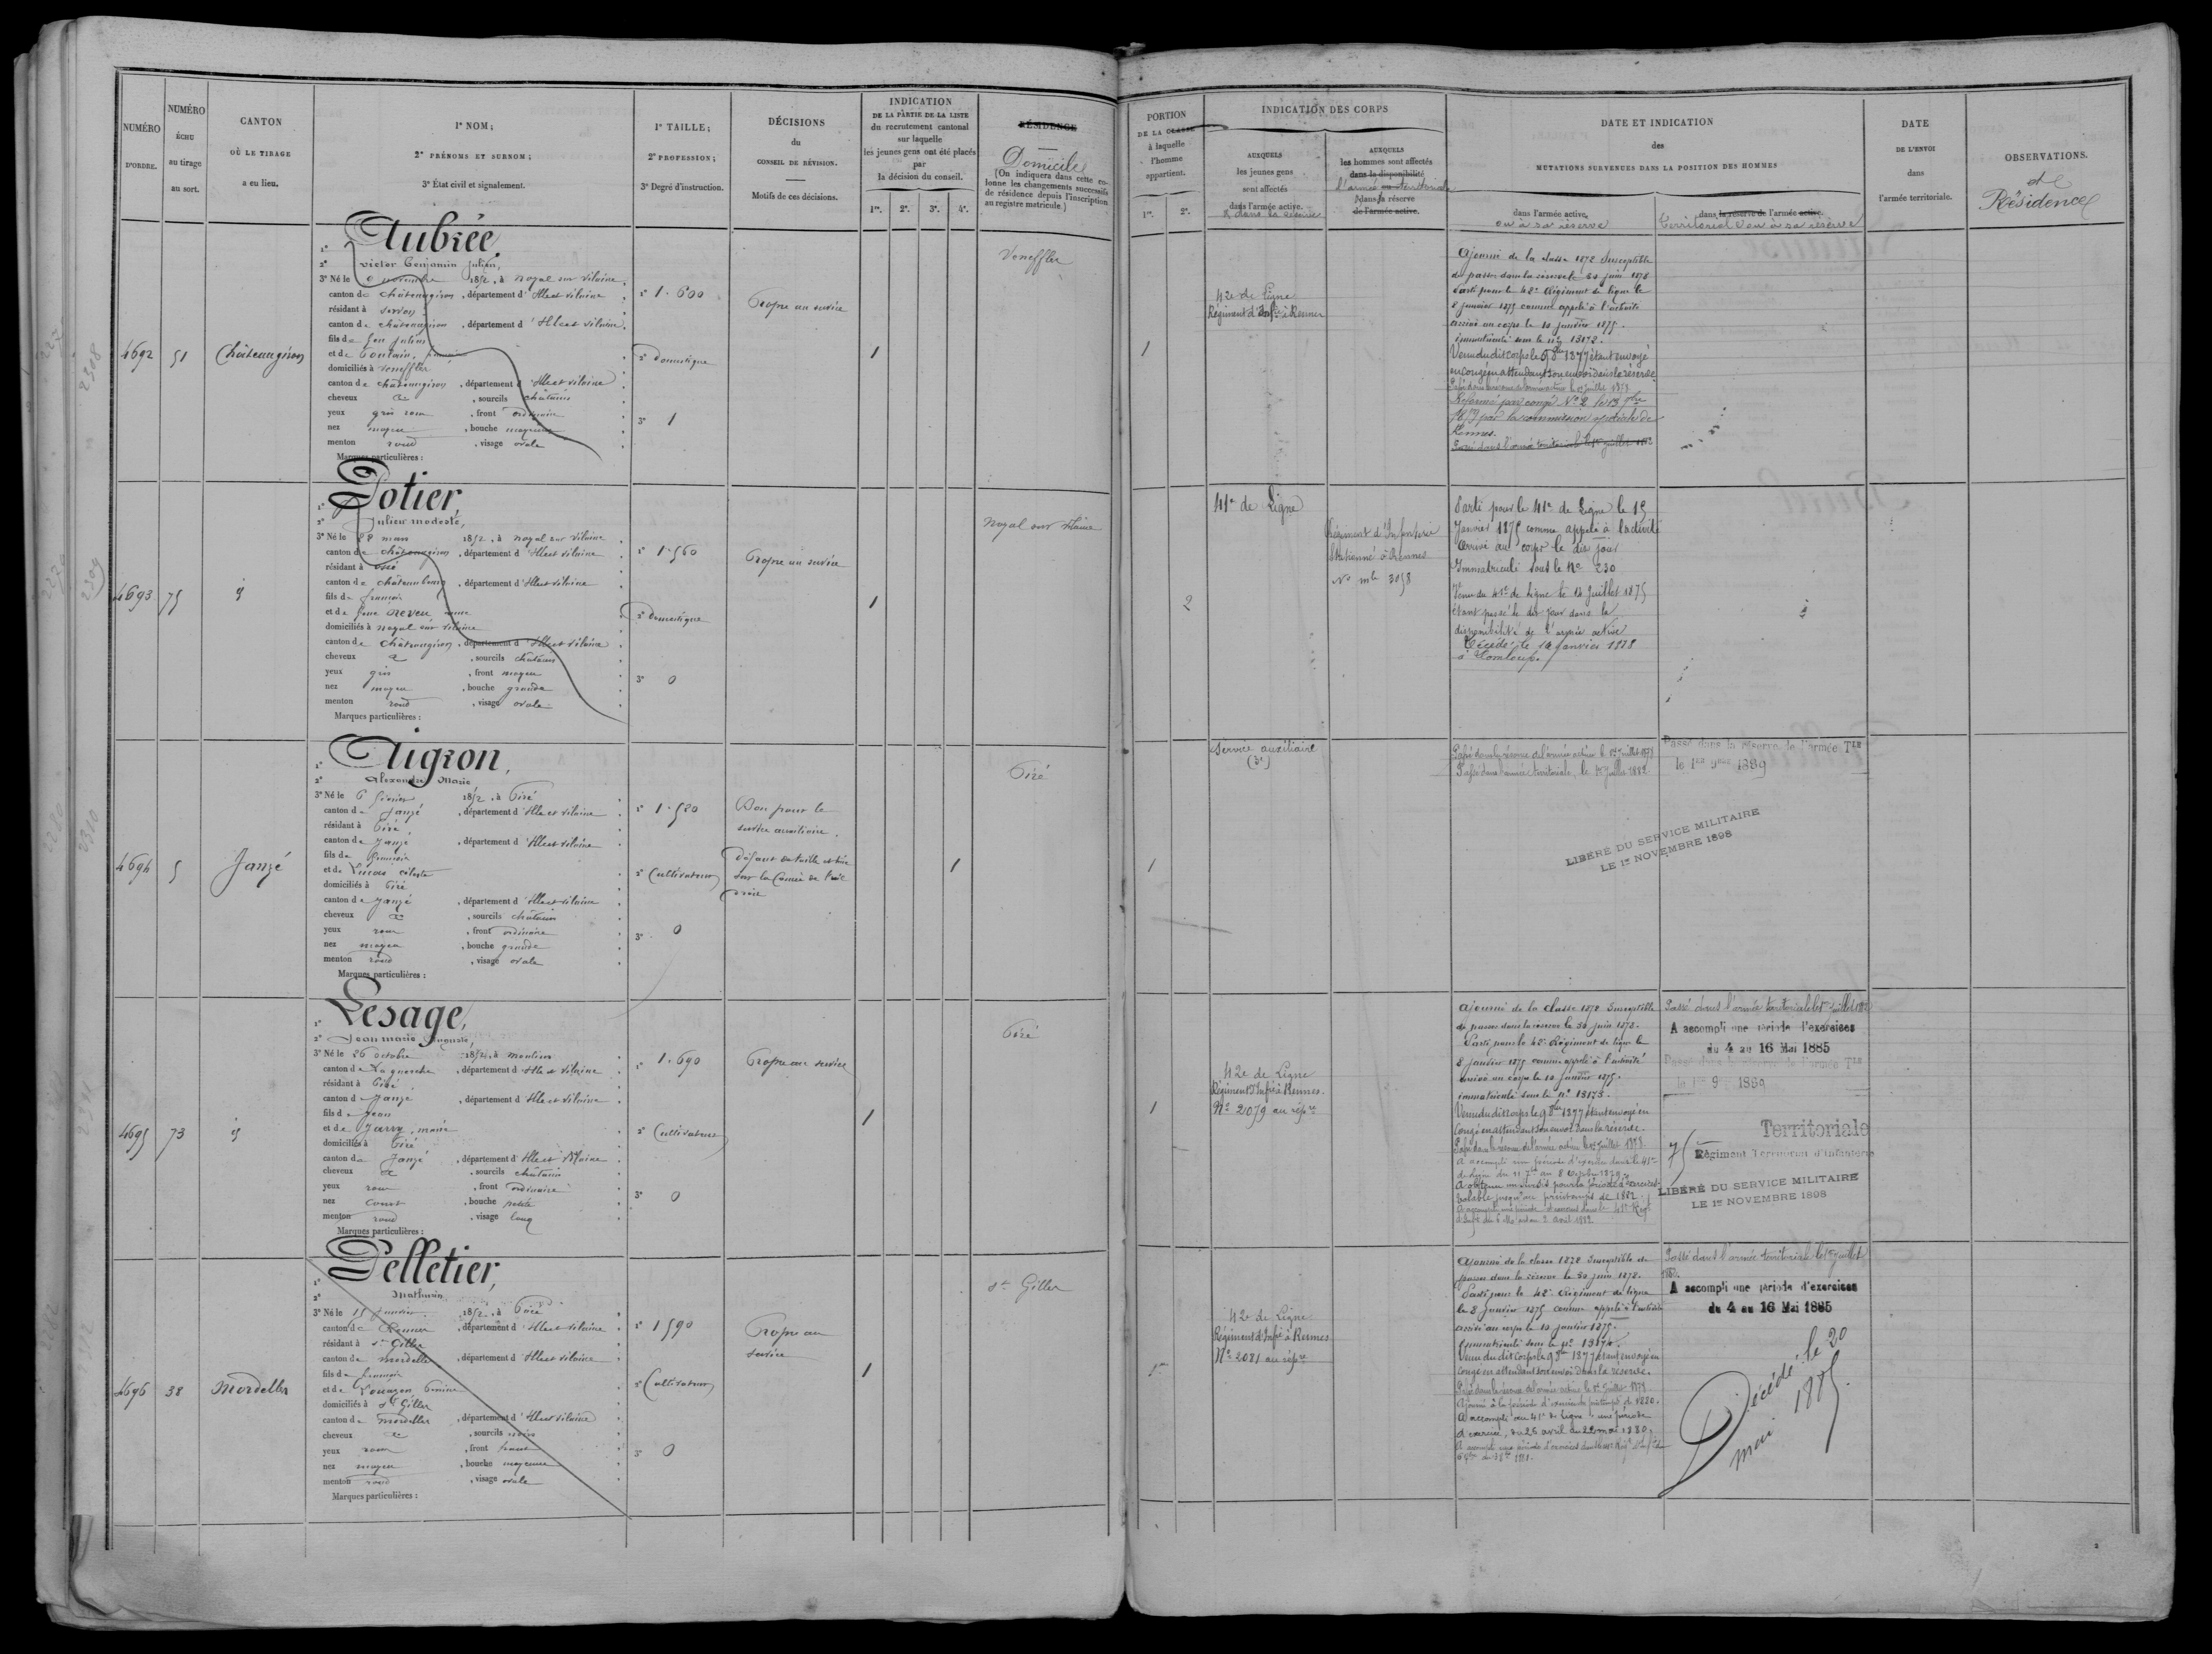 NUMÉRO
D'ORDRE.
NUMÉRO
ÉCHU
au tirage
au sort.
CANTON
OÙ LE TIRAGE
a eu lieu.
1° NOM;
2° PRÉNOMS ET SURNOM;
3° État civil et signalement.
1° TAILLE;
2° PROFESSION;
3° Degré d'instruction.
DÉCISIONS
du
CONSEIL DE RÉVISION.
Motifs de ces décisions.
INDICATION
DE LA PARTIE DE LA LISTE
du recrutement cantonal
sur laquelle
les jeunes gens ont été placés
par
la décision du conseil.
1re. 2e. 3e. 4e.
RÉSIDENCE
Domicile
(On indiquera dans cette co-
lonne les changements successifs
de résidence depuis l'inscription
au registre matricule.)
PORTION
DE LA CLASSE
à laquelle
l'homme
appartient.
1re. 2e.
INDICATION DES CORPS
AUXQUELS
les jeunes gens
sont affectés
dans l'armée active.
& dans la réserve
AUXQUELS
les hommes sont affectés
dans la disponibilité
l'armée territoriale
dans la réserve
de l'armée active.
DATE ET INDICATION
des
MUTATIONS SURVENUES DANS LA POSITION DES HOMMES
dans l'armée active,
ou à sa réserve
dans la réserve de l'armée active.
territoriale ou à sa réserve
DATE
DE L'ENVOI
dans
l'armée territoriale.
OBSERVATIONS.
et
Résidence
4692 51 Châteaugiron
1° Aubrée,
2° Victor Benjamin Julien,
3° Né le 6 novembre 1852, à Noyal sur Vilaine
canton de Châteaugiron, département d'Ille et Vilaine
résidant à Servon
canton de Châteaugiron, département d'Ille et Vilaine
fils de feu Julien
et de Boutain,
domiciliés à Veneffles
canton de Châteaugiron, département d'Ille et Vilaine
cheveux &, sourcils châtains
yeux gris roux, front ordinaire
nez moyen, bouche moyenne
menton rond, visage ovale
Marques particulières :
1° 1.600
2° Domestique
3° 1
Propre au service
1
Veneffles
1
42e de Ligne
Régiment d'Infie à Rennes
Ajourné de la classe 1872 Susceptible
de passer dans la réserve le 30 juin 1878
Parti pour le 42e Régiment de ligne le
8 janvier 1875 comme appelé à l'activité
arrivé au corps le 10 janvier 1875.
immatriculé sous le n° 13172.
Venu du dit corps le 9 8bre 1877 étant envoyé
en congé en attendant son envoi dans la réserve
Passé dans la réserve de l'armée active le 1er juillet 1879
Réformé par congé N° 2 le 13 9bre
par la commission spéciale de
Rennes.
Passé dans l'armée territoriale le 1er juillet
4693 75 id
1° Potier,
2° Julien Modeste,
3° Né le 28 mars 1852, à Noyal sur Vilaine
canton de Châteaugiron, département d'Ille et Vilaine
résidant à Ossé
canton de Châteaubourg, département d'Ille et Vilaine
fils de François
et de feue Neveu Anne
domiciliés à Noyal sur Vilaine
canton de Châteaugiron, département d'Ille et Vilaine
cheveux &, sourcils châtains
yeux gris, front moyen
nez moyen, bouche grande
menton rond, visage ovale
Marques particulières :
1° 1.560
2° Domestique
3° 0
Propre au service
1
Noyal sur Vilaine
2
41e de Ligne
Régiment d'Infanterie
Stationné à Rennes
N° mle 3058
Parti pour le 41e de Ligne le 15
Janvier 1875 comme appelé à l'activité
Arrivé au corps le dit jour
Immatriculé sous le N° 230
Venu du 41e de Ligne le 14 Juillet 1875
étant passé le dit jour dans la
disponibilité de l'armée active
Décédé le 12 Janvier 1878
à Domloup.
4694 5 Janzé
1° Aigron,
2° Alexandre Marie
3° Né le 6 février 1852, à Piré
canton de Janzé, département d'Ille et Vilaine
résidant à Piré
canton de Janzé, département d'Ille et Vilaine
fils de François
et de Lucas Céleste
domiciliés à Piré
canton de Janzé, département d'Ille et Vilaine
cheveux &, sourcils châtains
yeux roux, front ordinaire
nez moyen, bouche grande
menton rond, visage ovale
Marques particulières :
1° 1.520
2° Cultivateur
3° 0
Bon pour le
service auxiliaire.
Défaut de taille et taie
sur la Cornée de l'œil
droit
1
Piré
1
Service auxiliaire
(3e)
Passé dans la réserve de l'armée active le 1er Juillet 1879
Passé dans l'armée territoriale, le 1er Juillet 1882
Passé dans la réserve de l'armée Tle
le 1er 9bre 1889
LIBÉRÉ DU SERVICE MILITAIRE
LE 1er NOVEMBRE 1898
4695 73 id
1° Lesage,
2° Jean Marie Auguste,
3° Né le 26 octobre 1852, à Moulins
canton de La Guerche, département d'Ille et Vilaine
résidant à Piré
canton de Janzé, département d'Ille et Vilaine
fils de Jean
et de Jarry, Marie
domiciliés à Piré
canton de Janzé, département d'Ille et Vilaine
cheveux &, sourcils châtains
yeux roux, front ordinaire
nez court, bouche petite
menton rond, visage long
Marques particulières :
1° 1.690
2° Cultivateur
3° 0
Propre au service
1
Piré
1
42e de Ligne
Régiment d'Infie à Rennes.
N° 2079 au répre
Ajourné de la classe 1872 Susceptible
de passer dans la réserve le 30 juin 1878.
Parti pour le 42e Régiment de ligne le
8 janvier 1875 comme appelé à l'activité
arrivé au corps le 10 janvier 1875.
immatriculé sous le n° 13173.
Venu du dit corps le 9 8bre 1877 étant envoyé en
congé en attendant son envoi dans la réserve.
Passé dans la réserve de l'armée active le 1er juillet 1878.
A accompli une période d'exercice dans le 41e
de Ligne du 11 7bre au 8 Octobre 1879.
A obtenu un sursis pour la période d'exercices
valable jusqu'au printemps de 1882.
A accompli une période d'exercices dans le 41e Régt
d'Inft. du 6 Mars au 2 avril 1882.
Passé dans l'armée territoriale le 1er juillet 1882
A accompli une période d'exercices
du 4 au 16 Mai 1885
Passé dans la réserve de l'armée Tle
le 1er 9 1889
Territoriale
75
Régiment Territorial d'Infanterie
LIBÉRÉ DU SERVICE MILITAIRE
LE 1er NOVEMBRE 1898
4696 38 Mordelles
1° Pelletier,
2° Mathurin
3° Né le 15 Janvier 1852, à Pacé
canton de Rennes, département d'Ille et Vilaine
résidant à St Gilles
canton de Mordelles, département d'Ille et Vilaine
fils de François
et de Louazon, Perrine
domiciliés à St Gilles
canton de Mordelles, département d'Ille et Vilaine
cheveux &, sourcils noirs
yeux roux, front haut
nez moyen, bouche moyenne
menton rond, visage ovale
Marques particulières :
1° 1590
2° Cultivateur
3° 0
Propre au
service
1
St Gilles
1
42e de Ligne
Régiment d'Infie à Rennes
N° 2081 au répre
Ajourné de la classe 1872 Susceptible de
passer dans la réserve le 30 juin 1878.
Parti pour le 42e Régiment de ligne
le 8 Janvier 1875 comme appelé à l'activité
arrivé au corps le 10 janvier 1875.
Immatriculé sous le n° 13174.
Venu du dit corps le 9 8bre 1877 étant envoyé en
congé en attendant son envoi dans la réserve.
Passé dans la réserve de l'armée active le 1er Juillet 1879
Ajourné à la période d'exercices du printemps de 1880.
A accompli au 41e de Ligne, une période
d'exercice, du 25 avril au 22 mai 1880.
A accompli une période d'exercices dans le
Passé dans l'armée territoriale le 1er juillet
1882.
A accompli une période d'exercices
du 4 au 16 Mai 1885
Décédé : le 20
mai 1885.